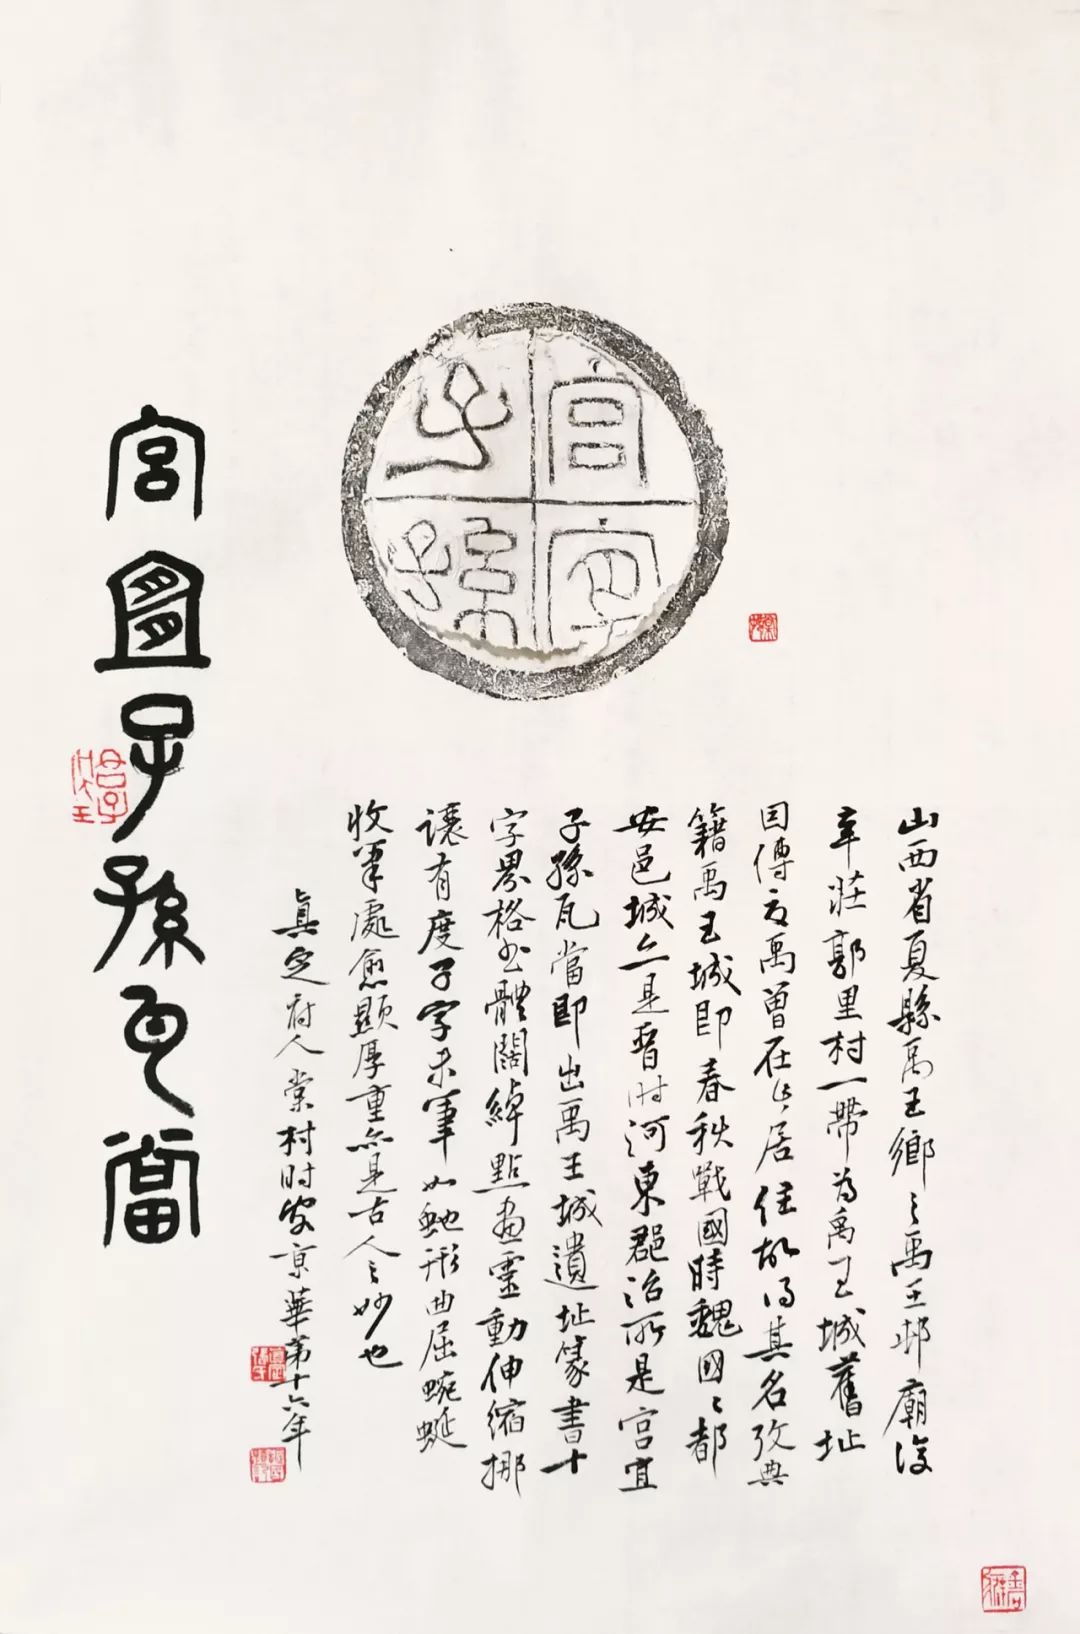 宫宜
子孫
山西省夏縣禹王鄉々禹王邨廟後
辛莊郭里村一帶为禹王城舊址
因傳言禹曾在此居住故得其名攷典
籍禹王城即春秋戰國時魏國之都
安邑城亦是晋时河東郡治所是宫宜
子孫瓦當即出禹王城遺址篆書十
字界格書體闊綽點畫靈動伸縮挪
讓有度子字末筆如虵形曲屈蜿蜒
收筆處愈顯厚重亦是古人之妙也
真定府人棠村时客京華第十六年
宫宜子孫瓦當